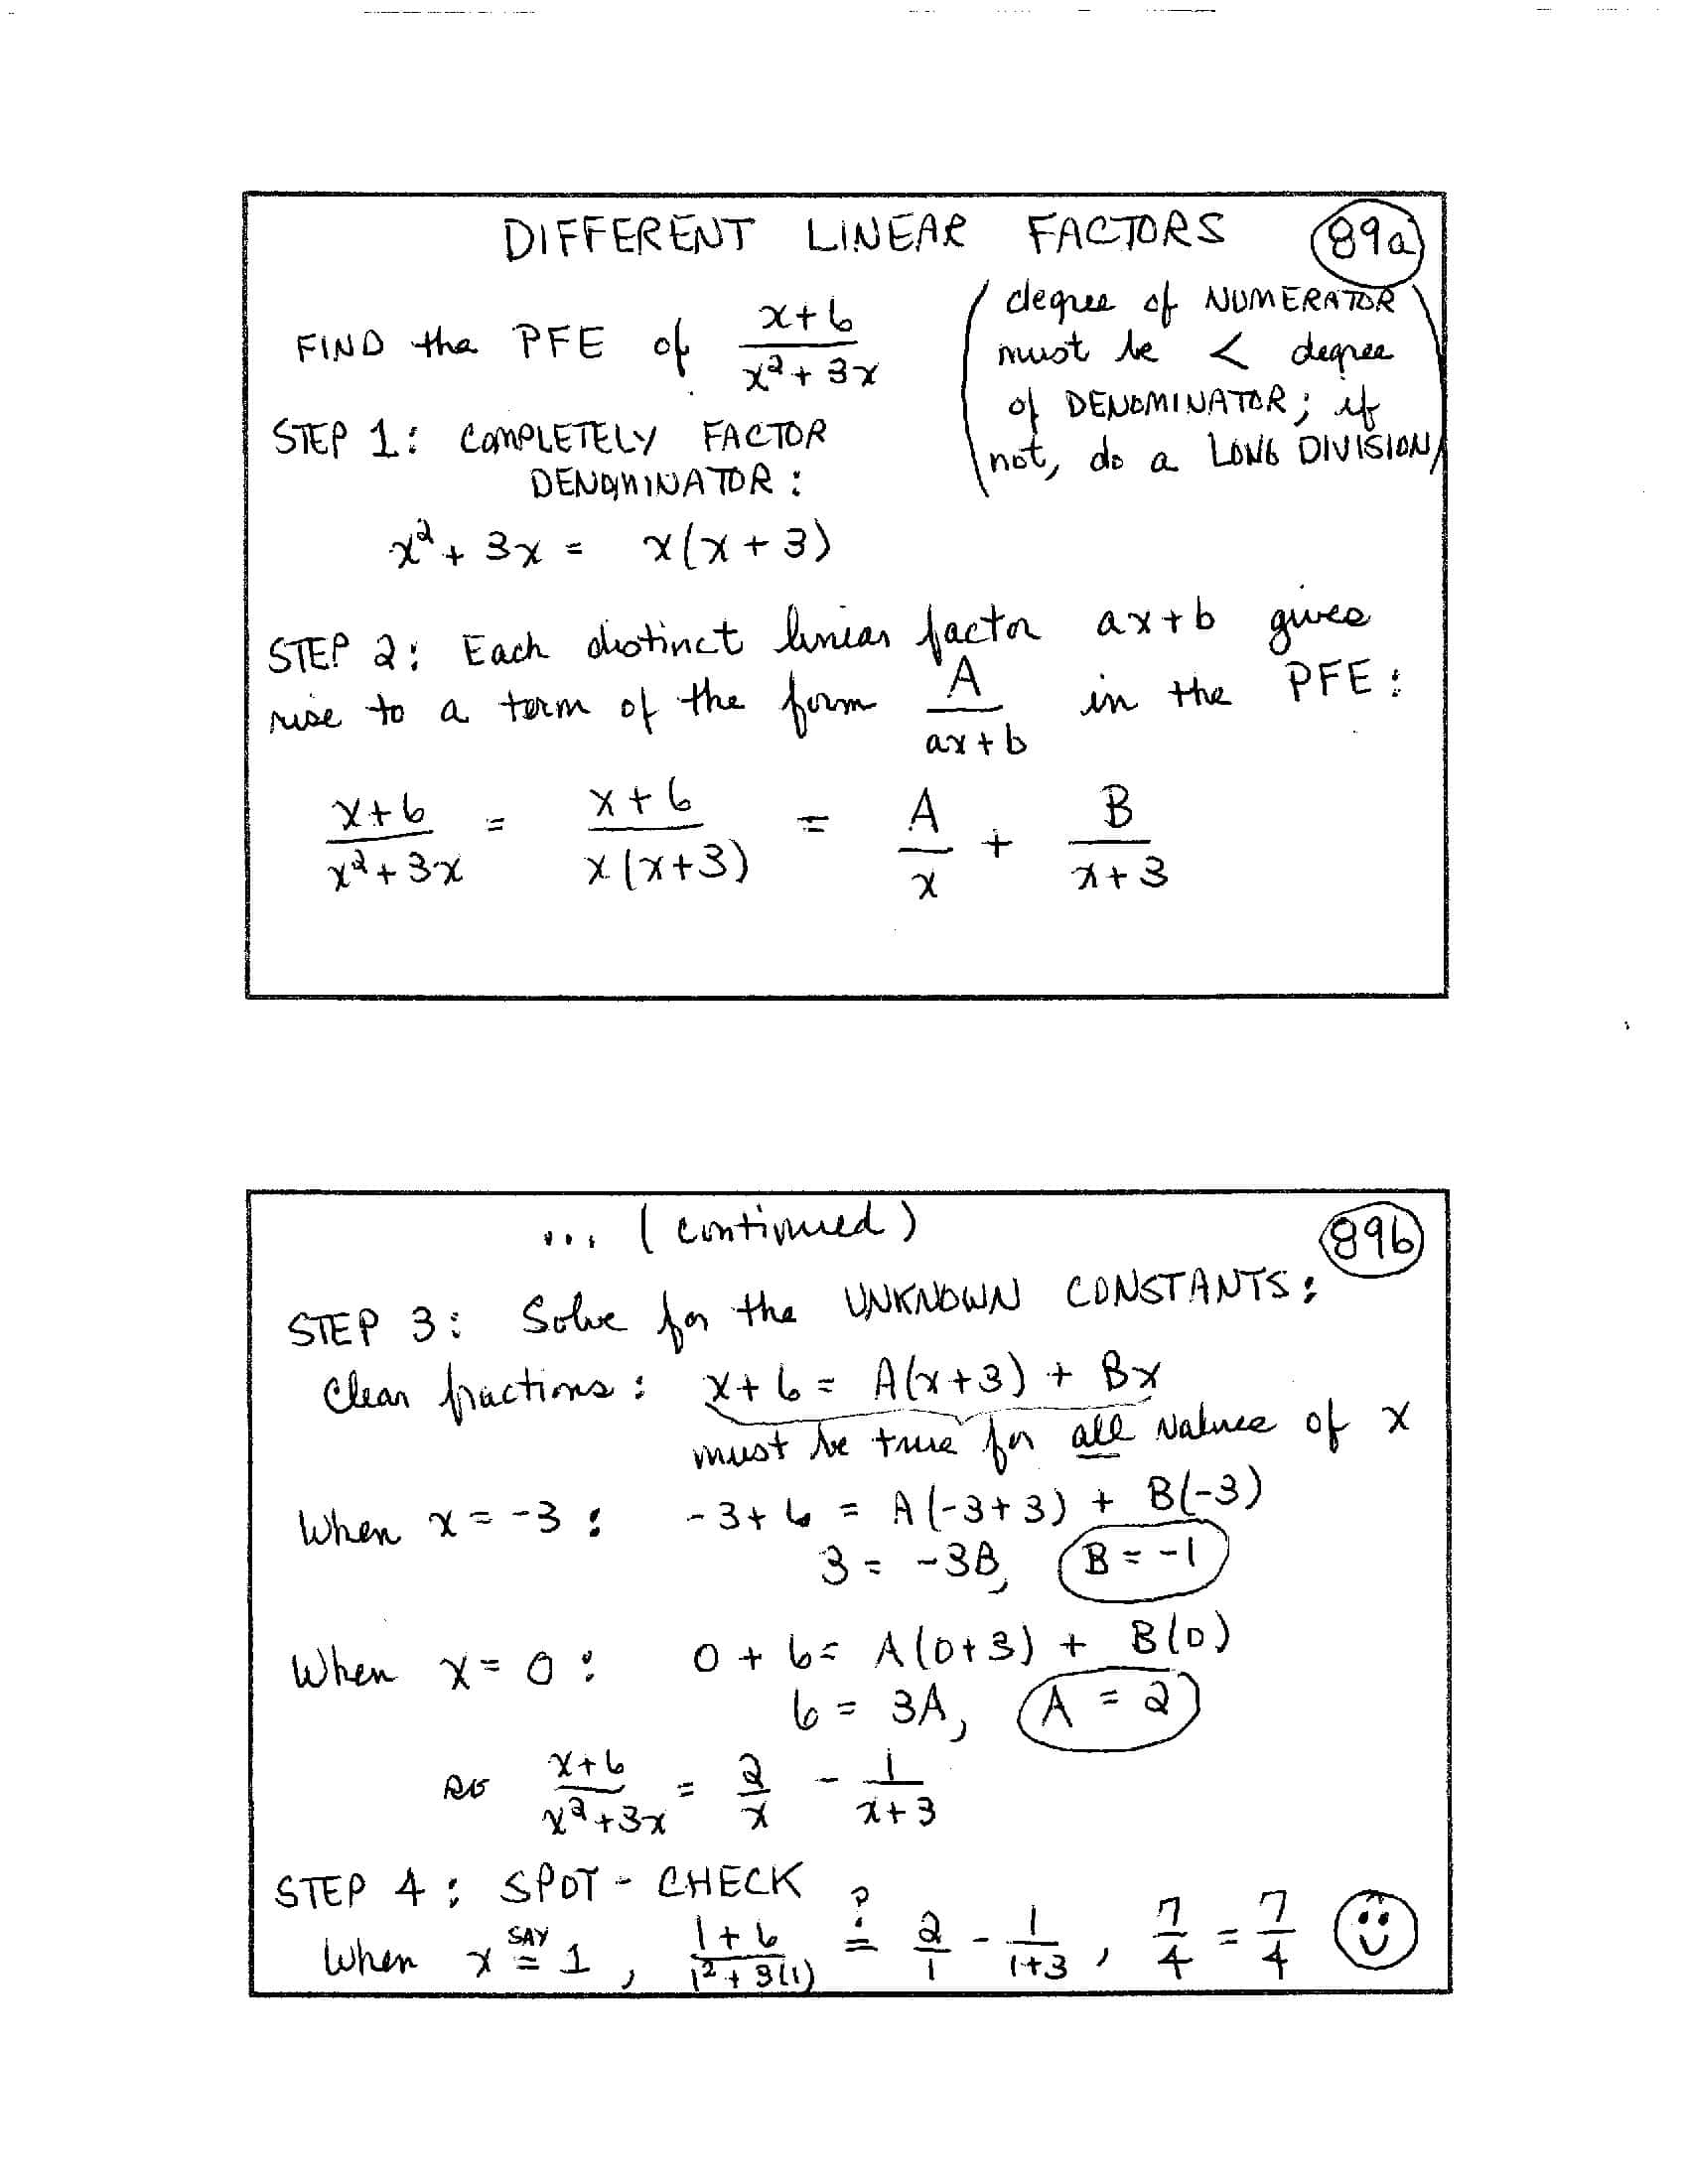 DIFFERENT LINEAR FACTORS 89a
FIND the PFE of (x+6)/(x²+3x)
(degree of NUMERATOR
must be < degree
of DENOMINATOR; if
not, do a LONG DIVISION)
STEP 1: COMPLETELY FACTOR
DENOMINATOR:
x²+ 3x = x(x+3)
STEP 2: Each distinct linear factor ax+b gives
rise to a term of the form A/(ax+b) in the PFE:
(x+6)/(x²+3x) = (x+6)/(x(x+3)) = A/x + B/(x+3)
... (continued) 89b
STEP 3: Solve for the UNKNOWN CONSTANTS:
Clear fractions: x+6 = A(x+3) + Bx
must be true for all values of x
When x = -3: -3+6 = A(-3+3) + B(-3)
3 = -3B, B = -1
When x = 0: 0+6 = A(0+3) + B(0)
6 = 3A, A = 2
so (x+6)/(x²+3x) = 2/x - 1/(x+3)
STEP 4: SPOT-CHECK
SAY
When x = 1, (1+6)/(1²+3(1)) ?= 2/1 - 1/(1+3), 7/4 = 7/4